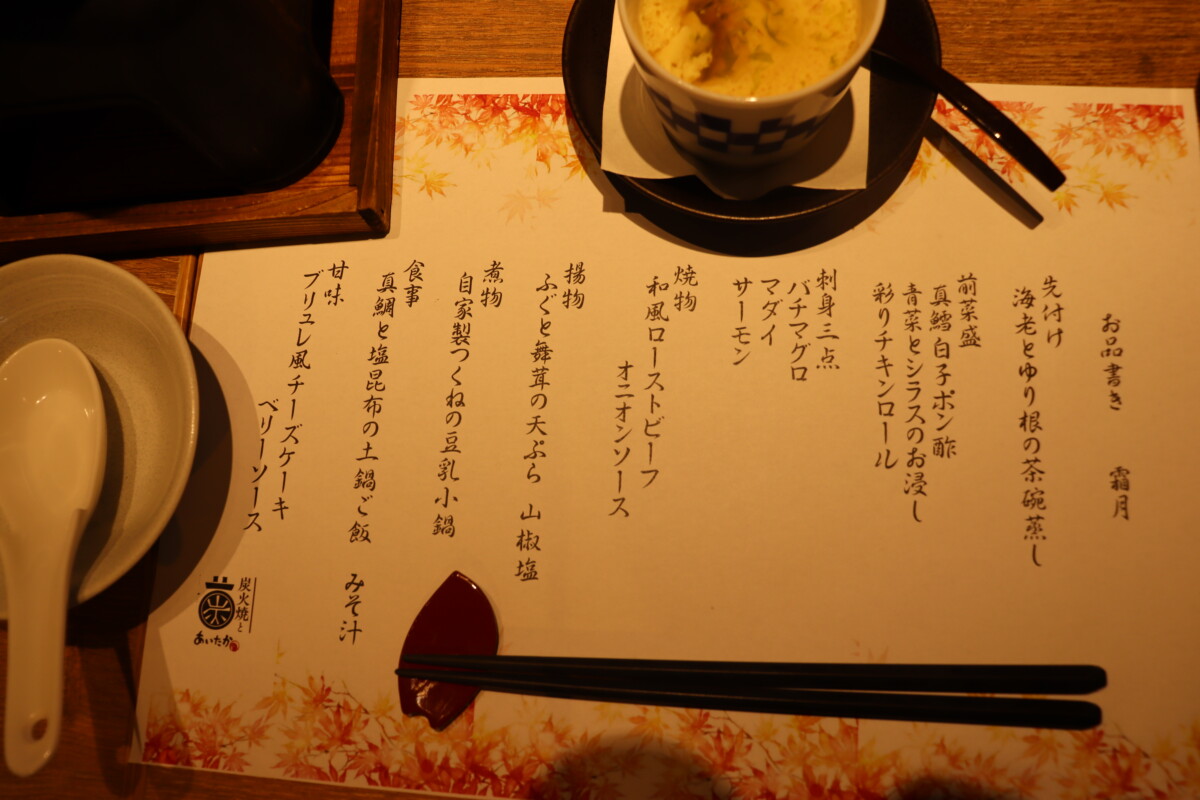 お品書き 霜月
先付け
海老とゆり根の茶碗蒸し
前菜盛
真鱈白子ポン酢
青菜とシラスのお浸し
彩りチキンロール
刺身三点
バチマグロ
マダイ
サーモン
焼物
和風ローストビーフ
オニオンソース
揚物
ふぐと舞茸の天ぷら 山椒塩
煮物
自家製つくねの豆乳小鍋
食事
真鯛と塩昆布の土鍋ご飯 みそ汁
甘味
ブリュレ風チーズケーキ
ベリーソース
炭火焼と
あいたか